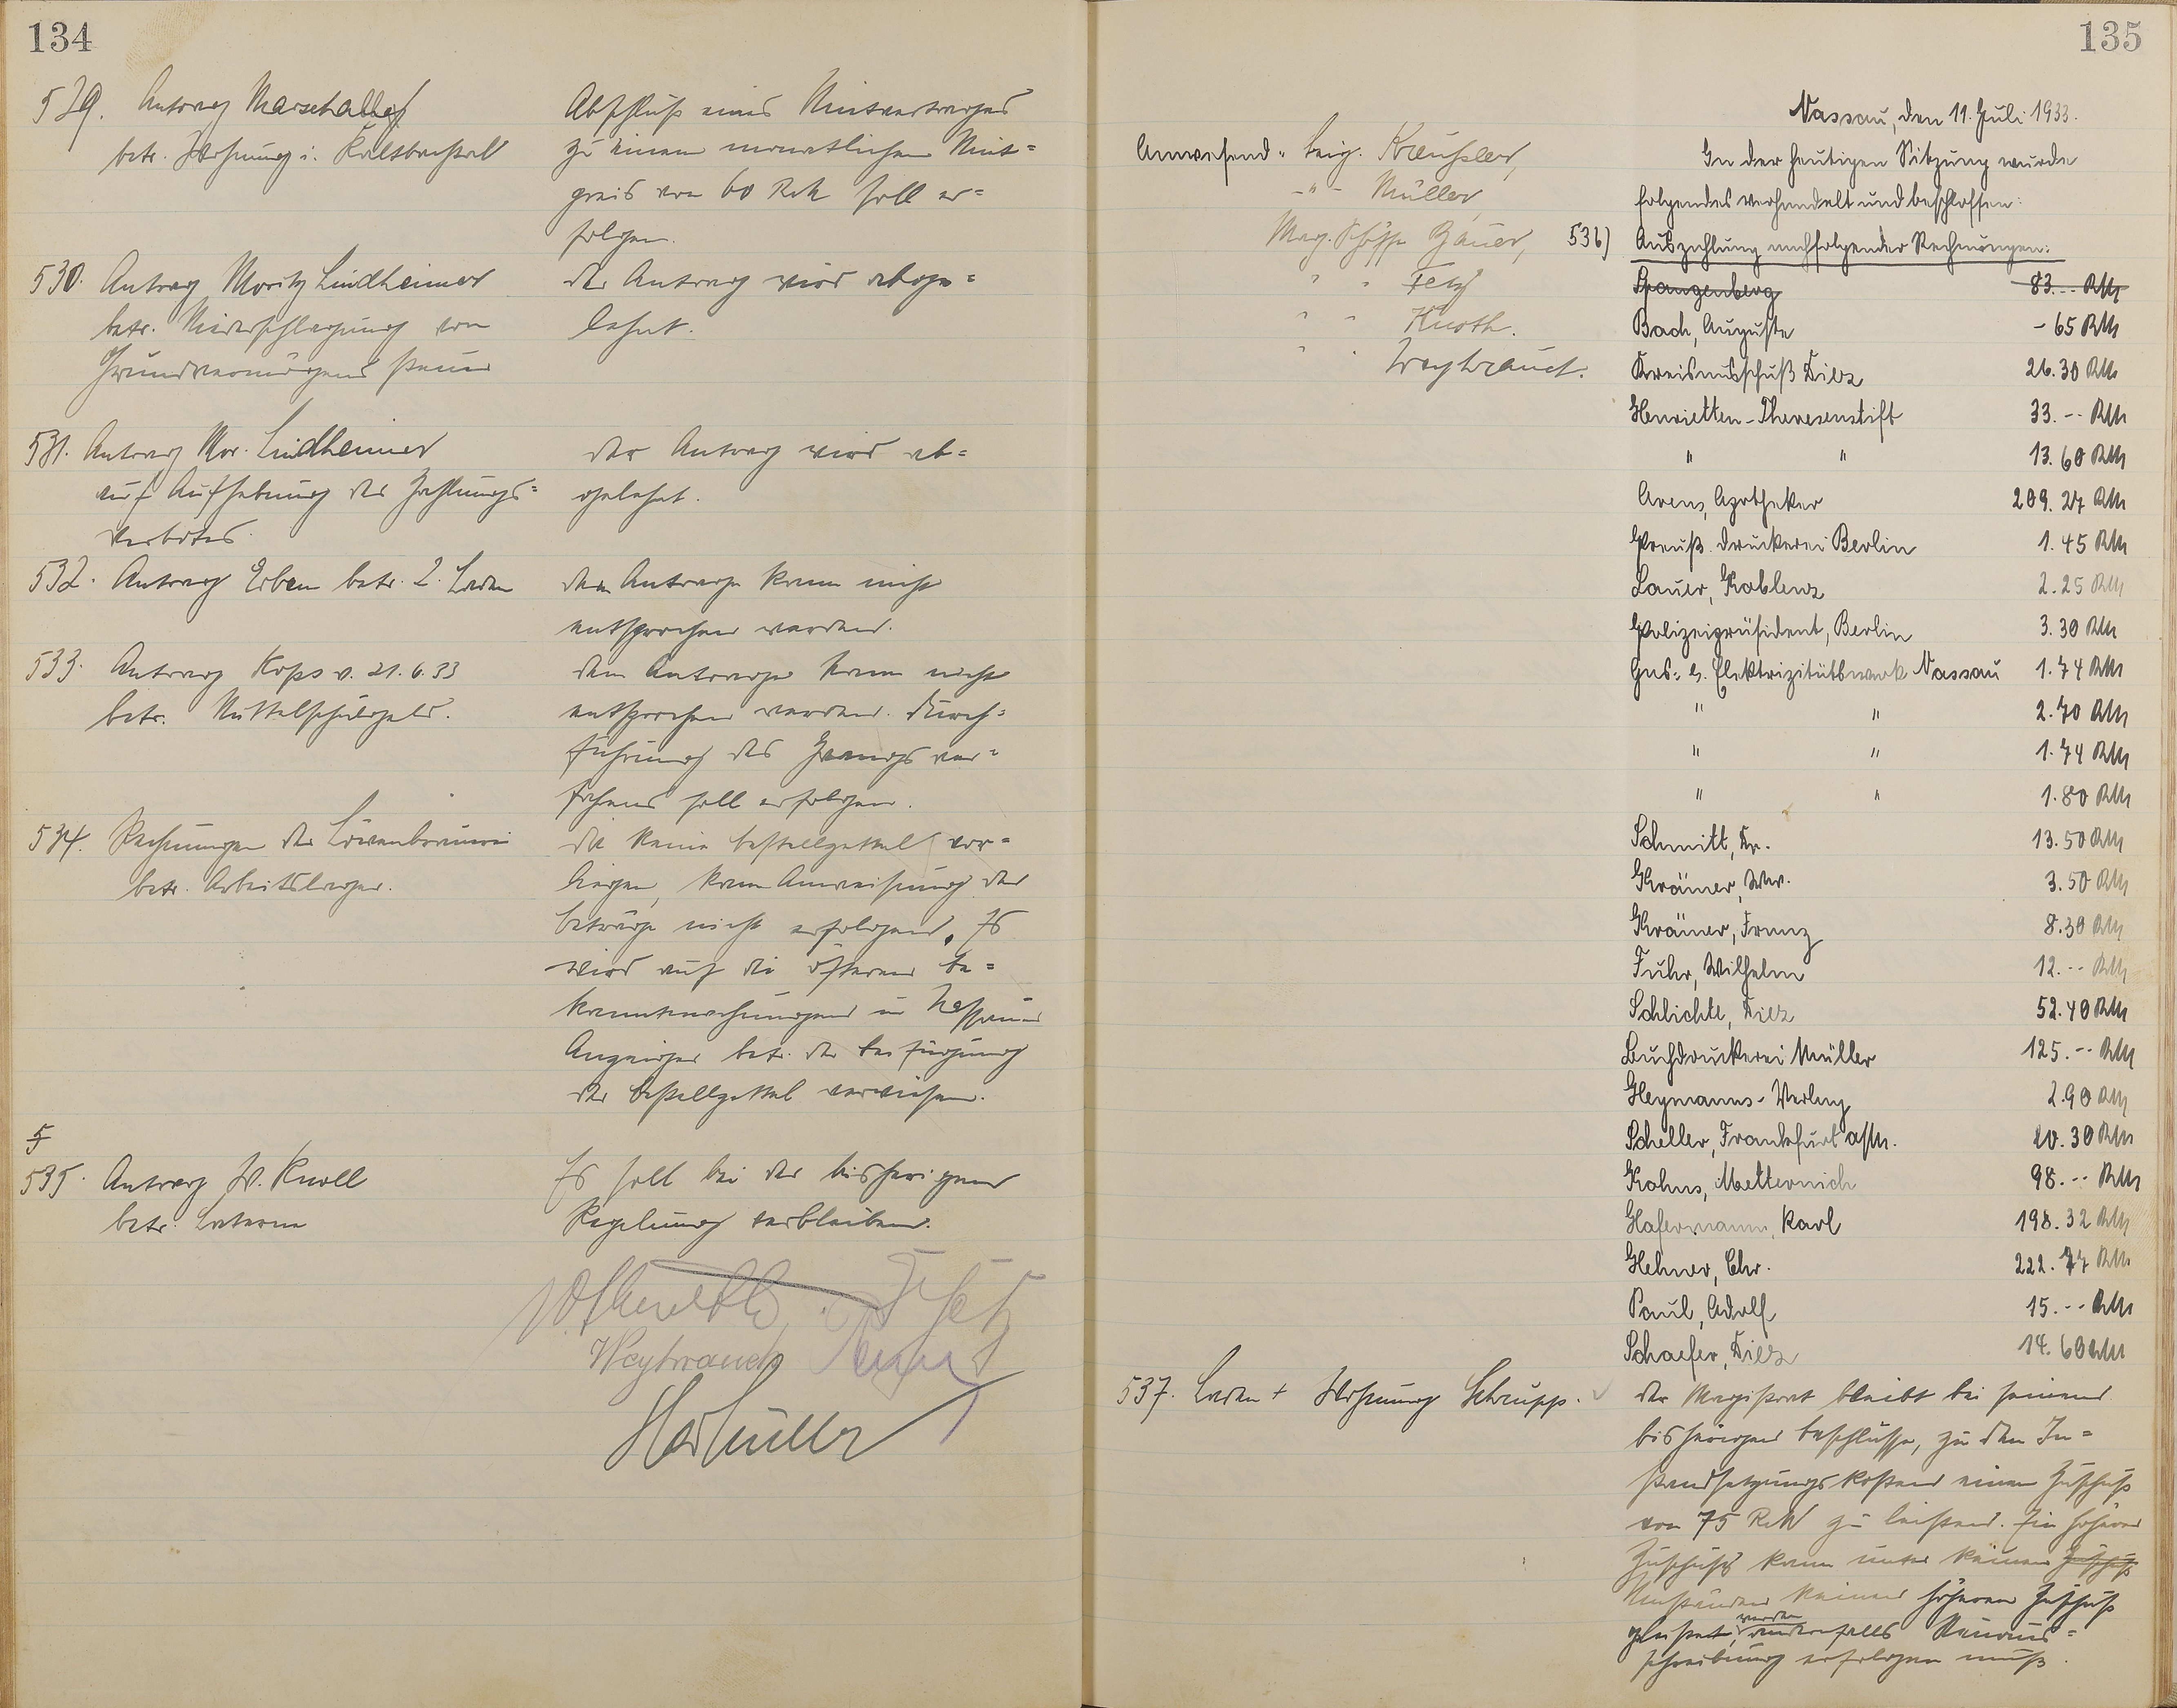 134
529. Antrag Marschall
betr. Wohnung i. Kaltbachtal
Abschluß eines Mietvertrages
zu einem monatlichen Miet=
preis von 60 RM soll er=
folgen.
530. Antrag Moritz Lindheimer
betr. Niederschlagung von
Grundvermögens steuer
Der Antrag wird abge=
lehnt.
531. Antrag Mor. Lindheimer
auf Aufhebung des Zahlungs=
verbotes.
Der Antrag wird ab=
gelehnt.
532. Antrag Erben betr. 2. Laden
Dem Antrage kann nicht
entsprochen werden.
533. Antrag Kops v. 21.6.33
betr. Mittelschulgeld.
Dem Antrage kann nicht
entsprochen werden. Durch=
führung des Zwangs ver=
fahrens soll erfolgen.
534. Rechnungen der Löwenbrauerei
betr. Arbeitslager.
Da keine Bestellzettel vor=
liegen, kann Anweisung der
Beträge nicht erfolgen. Es
wird auf die öfteren Be=
kanntmachungen im Nassauer
Anzeiger betr. der Beifügung
der Bestellzettel verwiesen.
5
535. Antrag W. Knoll
betr. Laterne
Es soll bei der bisherigen
Regelung verbleiben.
Fetz
Weybrauch
Müller
135
Nassau, den 11. Juli 1933.
Anwesend: Beig. Kreusler,
-"- Müller,
Mag. Schöffe Bauer,
" " Fetz
" " Knoth.
" " Weybrauch.
In der heutigen Sitzung wurde
folgendes verhandelt und beschlossen:
536) Auszahlung nachfolgender Rechnungen:
Spangenberg 83.-- RM
Bach, Auguste -65 RM
Kreisausschuß Diez 26.30 RM
Henrietten-Theresenstift 33.-- RM
" " 13.60 RM
Arens, Apotheker 209.27 RM
Preuß. Druckerei Berlin 1.45 RM
Lauer, Koblenz 2.25 RM
Polizeipräsident, Berlin 3.30 RM
Gas- u. Elektrizitätswerk Nassau 1.74 RM
" " 2.70 RM
" " 1.74 RM
" " 1.80 RM
Schmitt, Dr. 13.50 RM
Krämer, Ww. 3.50 RM
Krämer, Franz 8.30 RM
Fuhr, Wilhelm 12.-- RM
Schlichte, Diez 52.40 RM
Buchdruckerei Müller 125.-- RM
Heymanns-Verlag 2.90 RM
Scheller, Frankfurt a/M. 20.30 RM
Kohns, Metternich 98.-- RM
Hafermann, Karl 198.32 RM
Hehner, Chr. 222.77 RM
Paul, Adolf 15.-- RM
Schaefer, Diez 14.60 RM
537. Laden + Wohnung Schrupp.
Der Magistrat bleibt bei seinem
bisherigen Beschlusse, zu den In=
standsetzungskosten einen Zuschuß
von 75 RM zu leisten. Ein höherer
Zuschuß kann unter keinen Zuschuß
Umständen keinen höheren Zuschuß
geleistet werden, andernfalls Neuaus=
schreibung erfolgen muß.